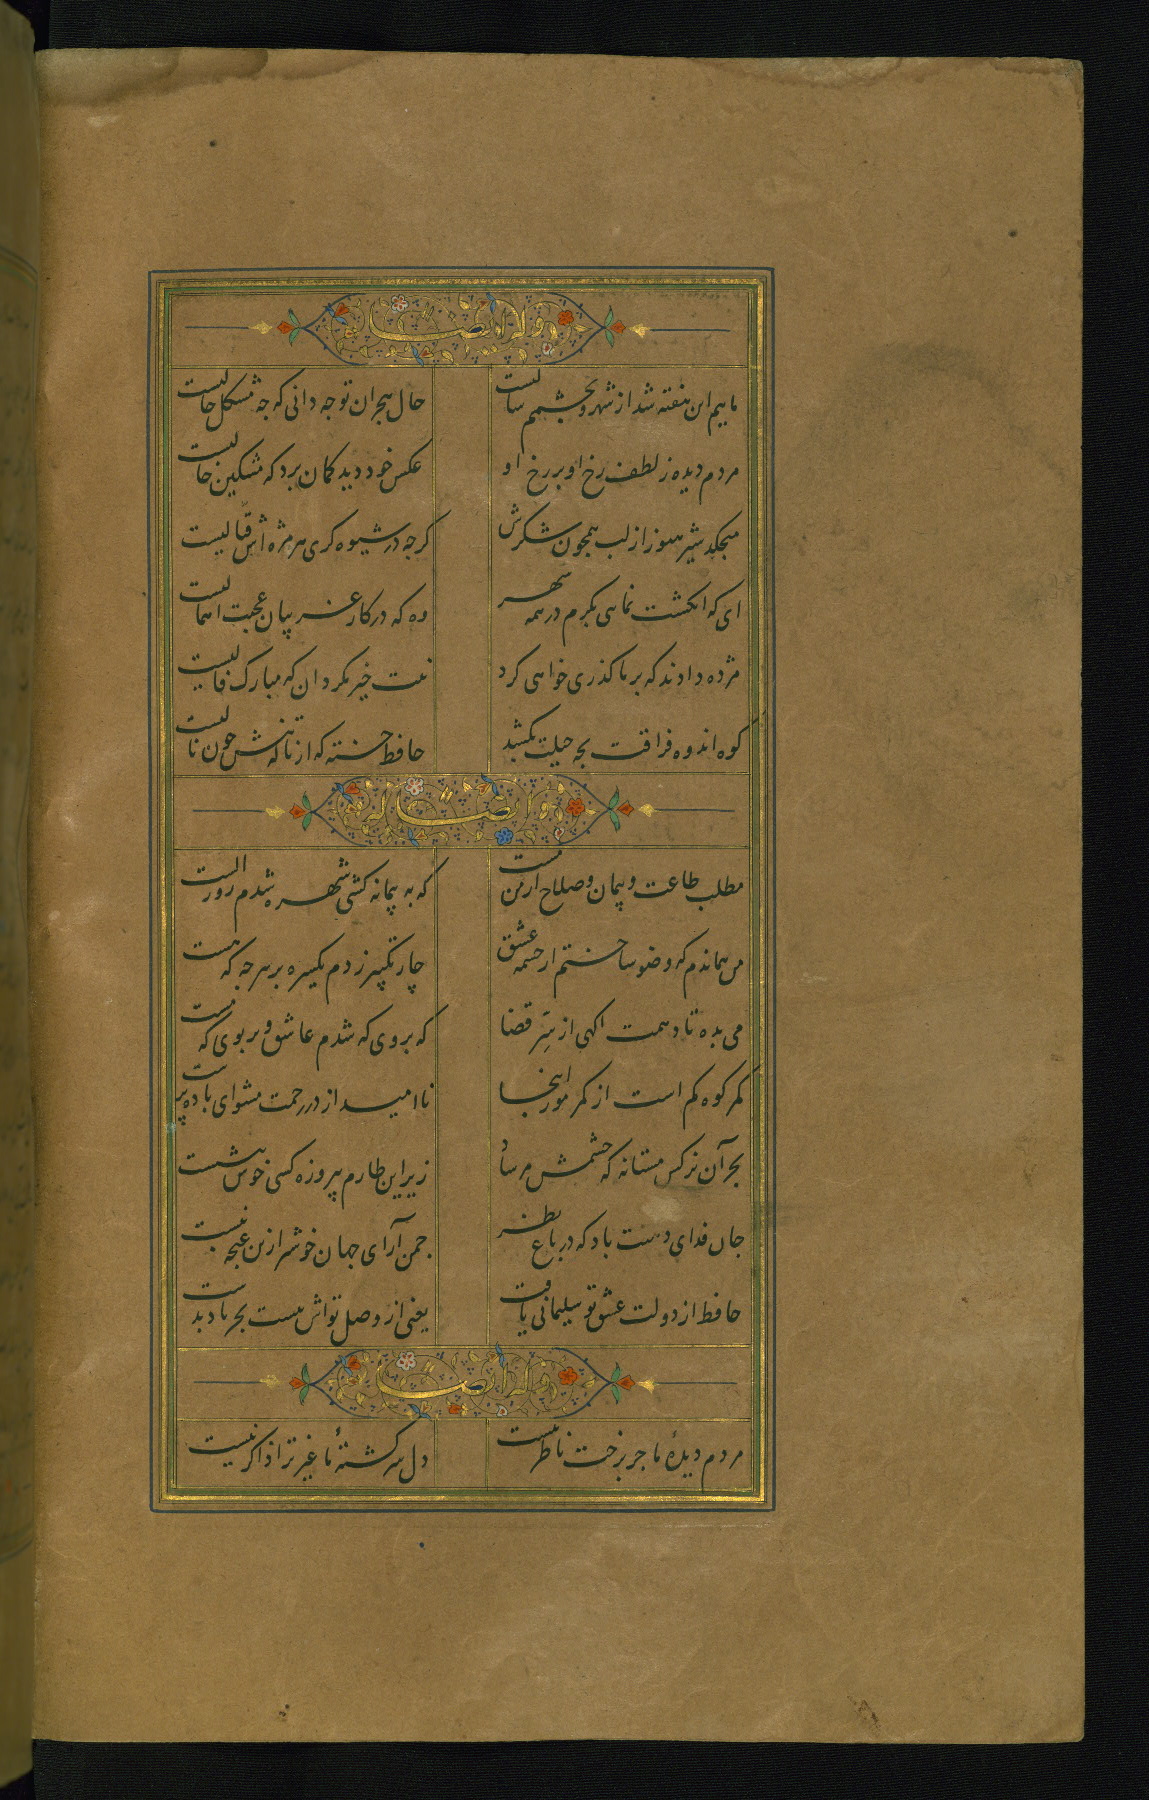 وله ایضا
ماهم این هفته شد از شهر و بچشمم سالیست
حال هجران تو چه دانی که چه مشکل حالیست
مردم دیده ز لطف رخ او بر رخ او
عکس خود دید کمان برد که مشکین خالیست
میچکد شیر هنوز از لب همچون شکرش
کرچه در شیوه کری هر مژه اش قتالیست
ای که انکشت نمایی بکرم در همه شهر
وه که در کار غریبان عجبت اهمالیست
مژده دادند که بر ما کذری خواهی کرد
نیت خیر مکردان که مبارک فالیست
کوه اندوه فراقت بچه حیلت بکشد
حافظ خسته که از ناله تنش چون نالیست
وله ایضا
مطلب طاعت و پیمان و صلاح از من مست
که به پیمانه کشی شهره شدم روز الست
من هماندم که وضو ساختم از چشمه عشق
چار تکبیر زدم یکسره بر هرچه که هست
می بده تا دهمت اکهی از سر قضا
که بروی که شدم عاشق و بر بوی که مست
کمر کوه کم است از کمر مور اینجا
ناامید از در رحمت مشو ای باده پرست
بجز آن نرکس مستانه که چشمش مرساد
زیر این طارم پیروزه کسی خوش ننشست
جان فدای دهنت باد که در باغ نظر
چمن آرای جهان خوشتر ازین غنچه نبست
حافظ از دولت عشق تو سلیمانی یافت
یعنی از وصل تواش نیست بجز باد بدست
وله ایضا
مردم دیدهٔ ما جز برخت ناظر نیست
دل سرکشتهٔ ما غیر ترا ذاکر نیست